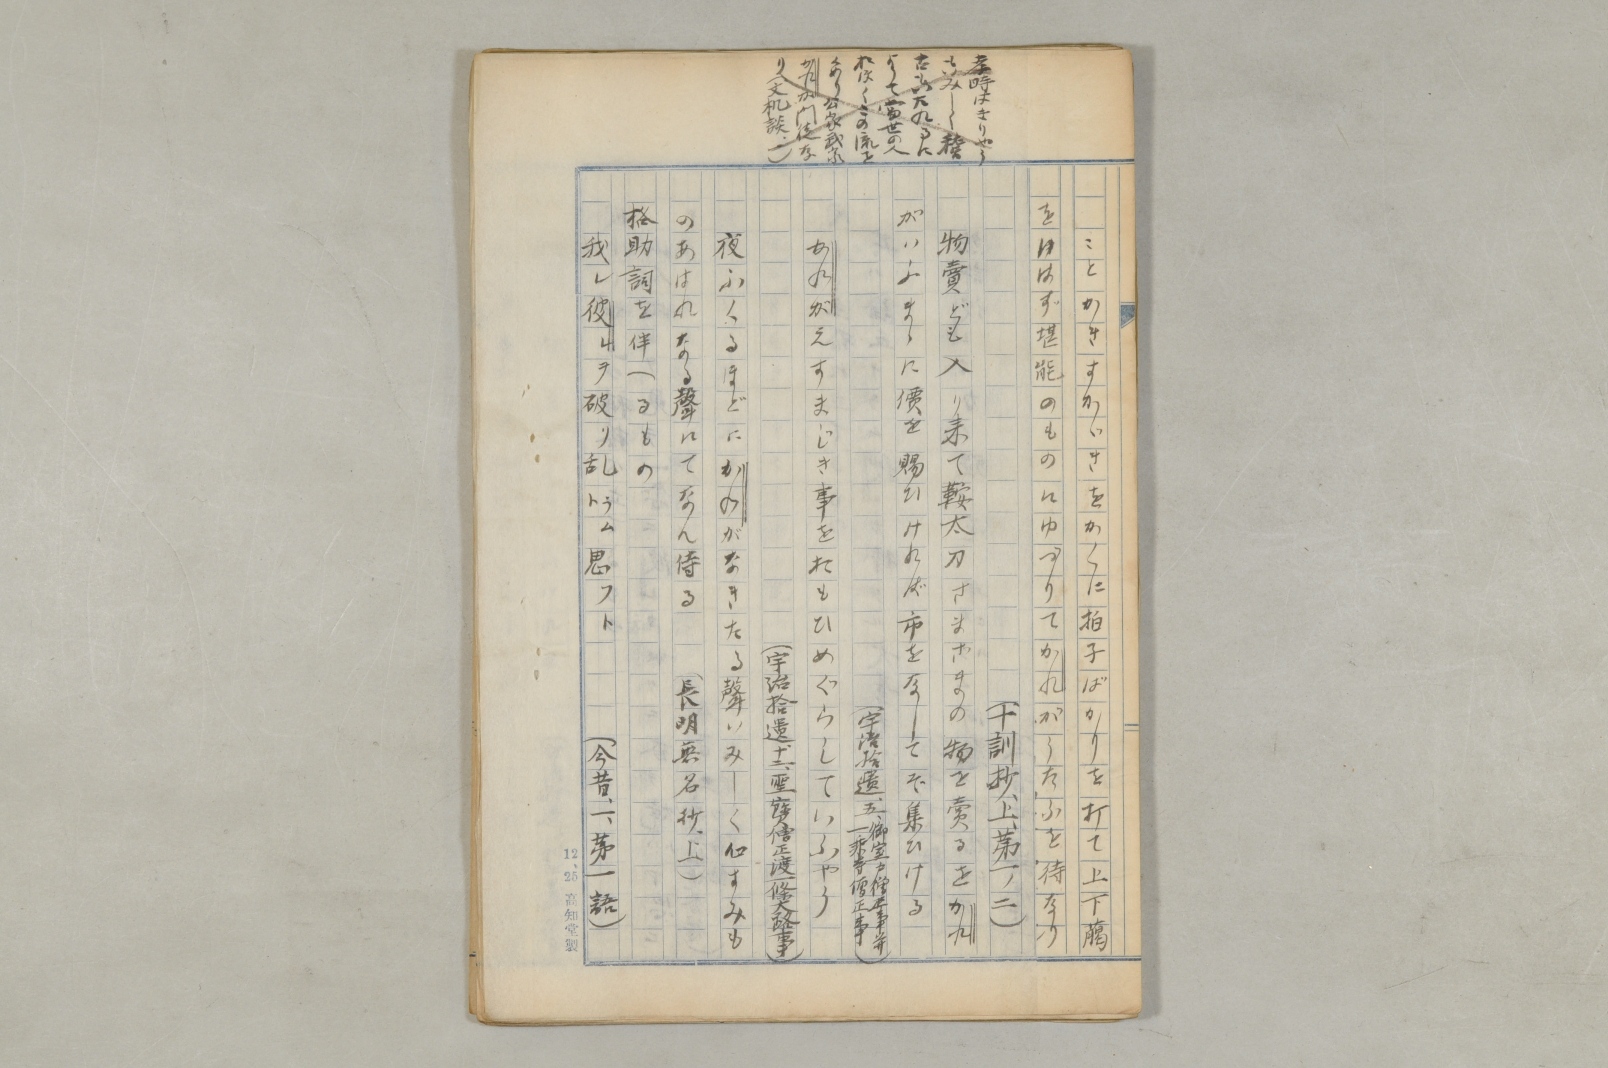 こと かきすかゞきをかくに拍子ばかりを打て上下﨟
をはず堪能のものにゆづりてかれがうたふを待なり
(十訓抄、上、第一ノ二)
物賣ども入り来て鞍太刀さまざまの物を賣るをかれ
がいふまゝに價を賜ひければ市をなしてぞ集ひける
(宇治拾遺、五、
一乗寺僧正事)
かれがえすまじき事をおもひめぐらしていふやう
(宇治拾遺十二、聖寶僧正渡一條大路事)
夜ふくるほどにかれがなきたる聲いみじく心すみも
のあはれなる聲にてなん侍る (長明無名抄、上)
格助詞を伴へるもの
我レ彼レヲ破リ乱トラム思フト (今昔、一、第一語)
孝時はきりやう
よて當世の人
おほくこの流を
公家武家
かれが門徒な
り(文机談、一)
12、25 高知堂製